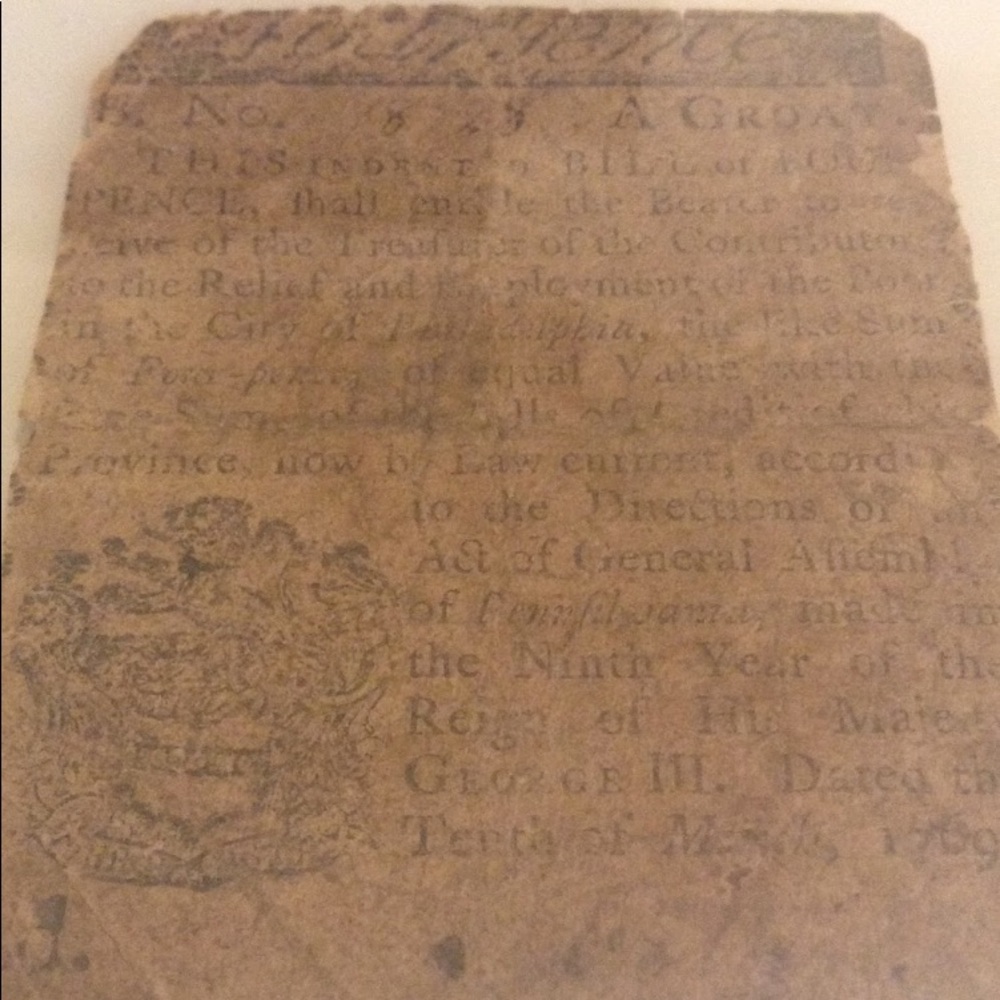 Four Pence
No. A GROAT.
THIS INDENTED BILL of FOUR
PENCE, ſhall entitle the Bearer to re-
ceive of the Treaſurer of the Contributors
to the Relief and Employment of the Poor
in the City of Philadelphia, the like Sum
of Four-pence, of equal Value with the
ſame Sum of the Bills of Credit of this
Province, now by Law current, accord
to the Directions of an
Act of General Aſſembly
of Pennſilvania, made in
the Ninth Year of the
Reign of His Majeſty
GEORGE III. Dated the
Tenth of March, 1769